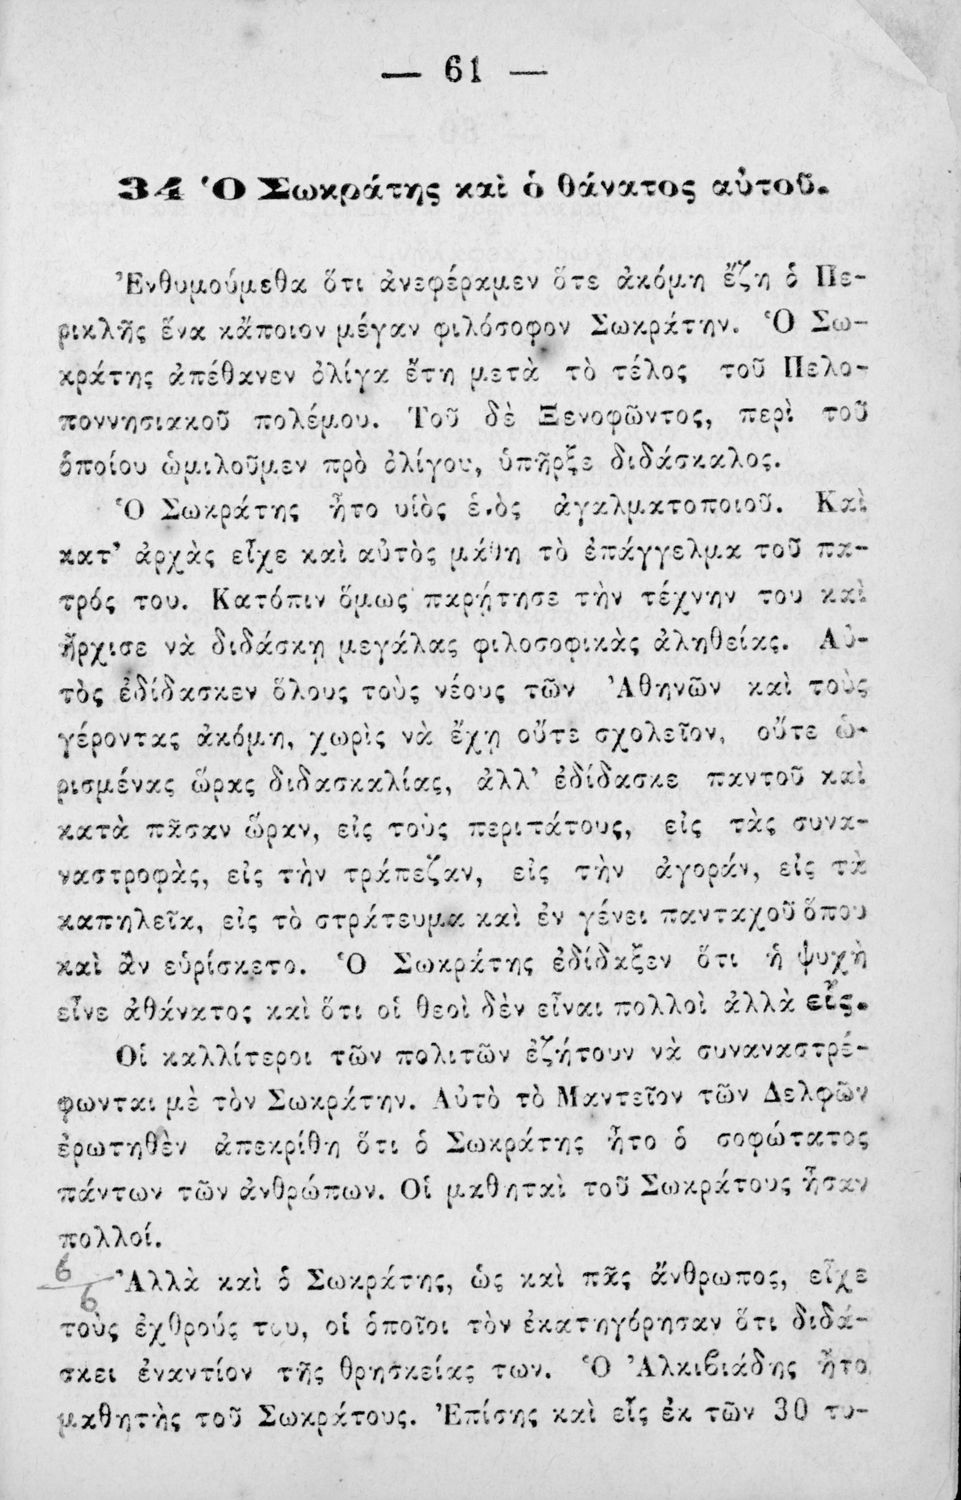 — 61 —
34 Ὁ Σωκράτης καὶ ὁ θάνατος αὐτοῦ.
Ἐνθυμούμεθα ὅτι ἀνεφέραμεν ὅτε ἀκόμη ἔζη ὁ Πε-
ρικλῆς ἕνα κἄποιον μέγαν φιλόσοφον Σωκράτην. Ὁ Σω-
κράτης ἀπέθανεν ὀλίγα ἔτη μετὰ τὸ τέλος τοῦ Πελο-
ποννησιακοῦ πολέμου. Τοῦ δὲ Ξενοφῶντος, περὶ τοῦ
ὁποίου ὡμιλοῦμεν πρὸ ὀλίγου, ὑπῆρξε διδάσκαλος.
Ὁ Σωκράτης ἦτο υἱὸς ἑνὸς ἀγαλματοποιοῦ. Καὶ
κατ’ ἀρχὰς εἶχε καὶ αὐτὸς μάθη τὸ ἐπάγγελμα τοῦ πα-
τρός του. Κατόπιν ὅμως παρῄτησε τὴν τέχνην του καὶ
ἤρχισε νὰ διδάσκῃ μεγάλας φιλοσοφικὰς ἀληθείας. Αὐ-
τὸς ἐδίδασκεν ὅλους τοὺς νέους τῶν Ἀθηνῶν καὶ τοὺς
γέροντας ἀκόμη, χωρὶς νὰ ἔχῃ οὔτε σχολεῖον, οὔτε ὡ-
ρισμένας ὥρας διδασκαλίας, ἀλλ’ ἐδίδασκε παντοῦ καὶ
κατὰ πᾶσαν ὥραν, εἰς τοὺς περιπάτους, εἰς τὰς συνα-
ναστροφὰς, εἰς τὴν τράπεζαν, εἰς τὴν ἀγοράν, εἰς τὰ
καπηλεῖα, εἰς τὸ στράτευμα καὶ ἐν γένει πανταχοῦ ὅπου
καὶ ἂν εὑρίσκετο. Ὁ Σωκράτης ἐδίδαξεν ὅτι ἡ ψυχὴ
εἶνε ἀθάνατος καὶ ὅτι οἱ θεοὶ δὲν εἶναι πολλοὶ ἀλλὰ εἷς.
Οἱ καλλίτεροι τῶν πολιτῶν ἐζήτουν νὰ συναναστρέ-
φωνται μὲ τὸν Σωκράτην. Αὐτὸ τὸ Μαντεῖον τῶν Δελφῶν
ἐρωτηθὲν ἀπεκρίθη ὅτι ὁ Σωκράτης ἦτο ὁ σοφώτατος
πάντων τῶν ἀνθρώπων. Οἱ μαθηταὶ τοῦ Σωκράτους ἦσαν
πολλοί.
6/6
Ἀλλὰ καὶ ὁ Σωκράτης, ὡς καὶ πᾶς ἄνθρωπος, εἶχε
τοὺς ἐχθρούς του, οἱ ὁποῖοι τὸν ἐκατηγόρησαν ὅτι διδά-
σκει ἐναντίον τῆς θρησκείας των. Ὁ Ἀλκιβιάδης ἦτο
μαθητὴς τοῦ Σωκράτους. Ἐπίσης καὶ εἷς ἐκ τῶν 30 τυ-